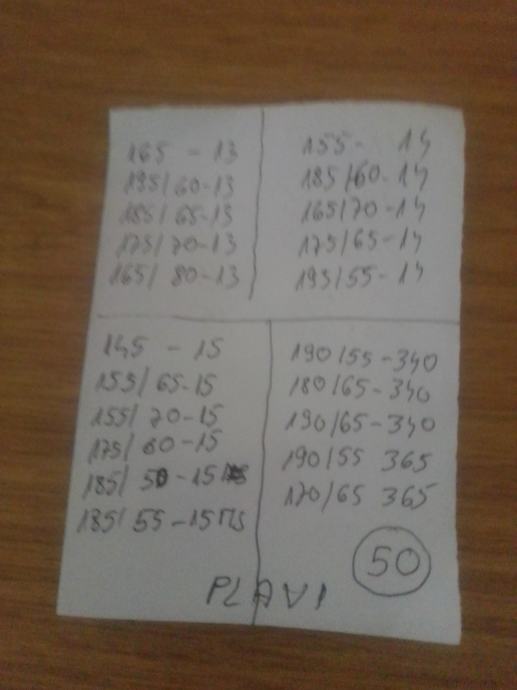 165 - 13
195/60-13
185/65-13
175/70-13
165/80-13
155- 14
185/60-14
165/70-14
175/65-14
195/55-14
145 - 15
155/65-15
155/70-15
175/60-15
185/50-15
185/55-15ПЅ
190/55-340
180/65-340
190/65-340
190/55 365
170/65 365
50
PLAVI